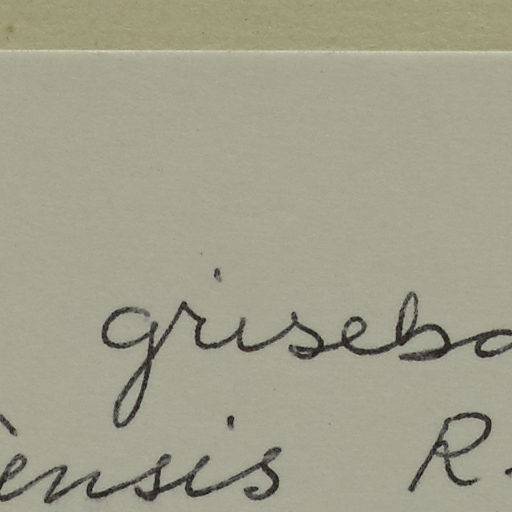 griseba
ensis R.